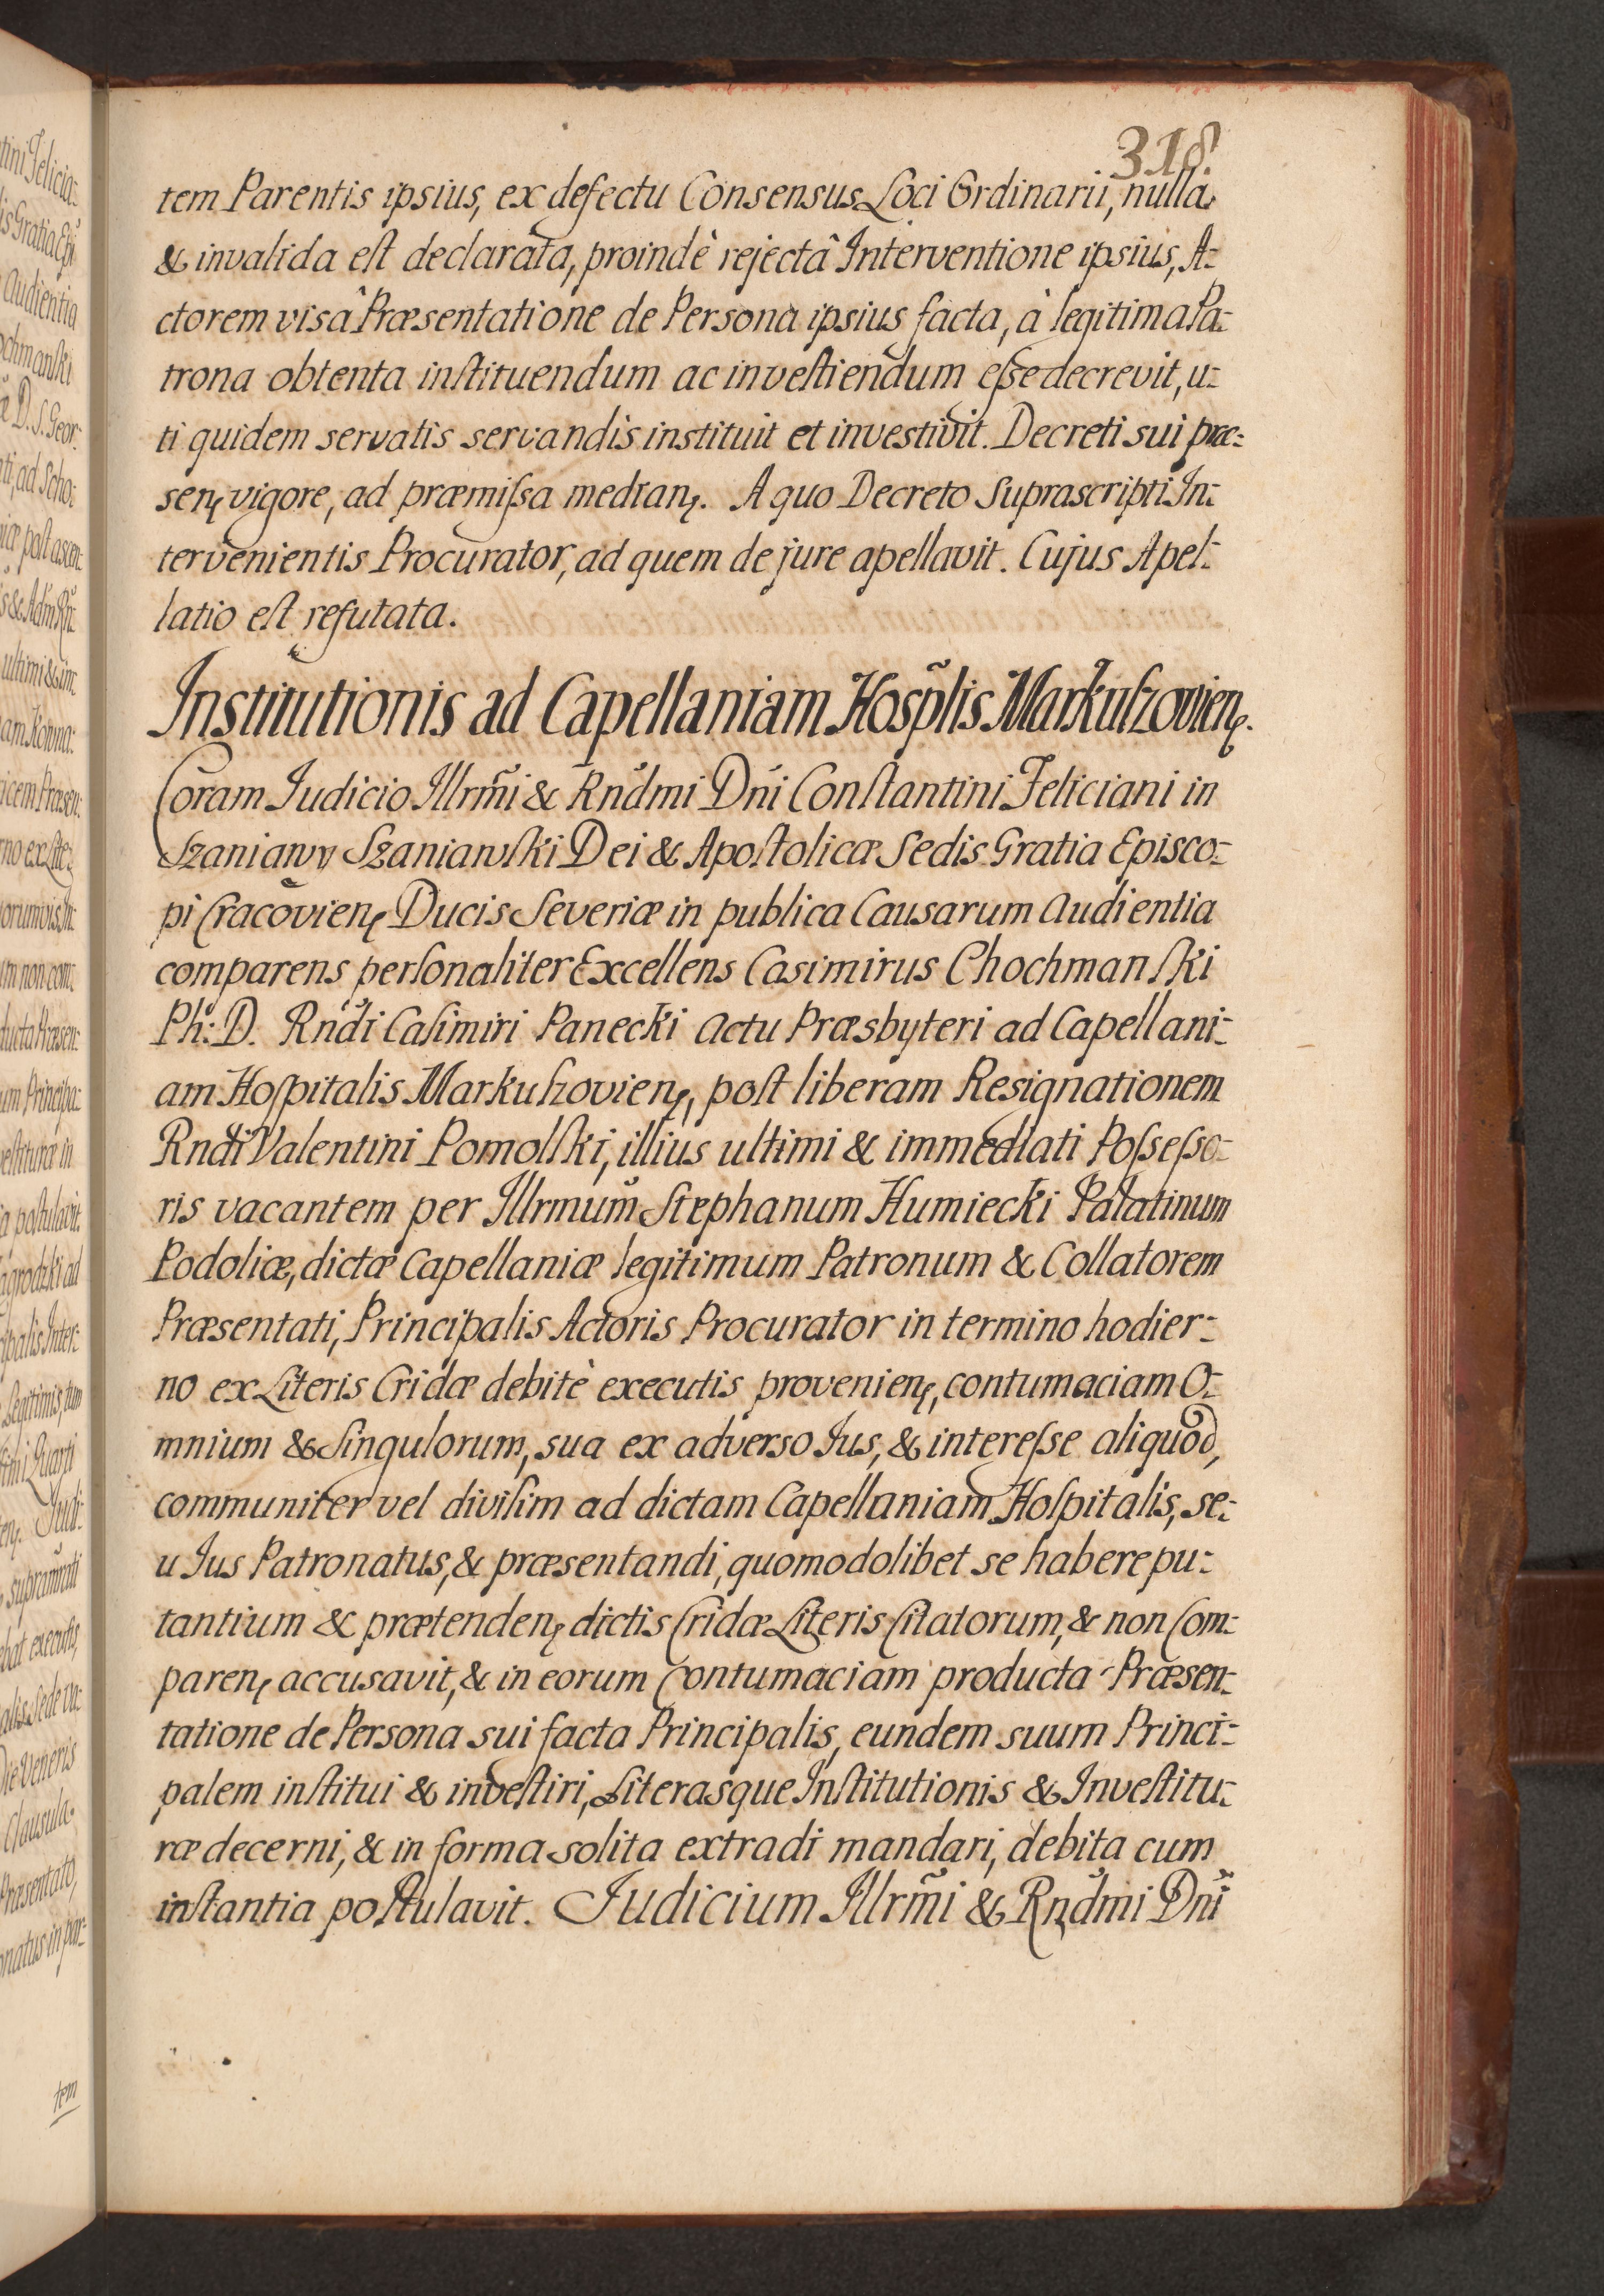 318.
tem Parentis ipsius, ex defectu Consensus Loci Ordinarii, nulla
& invalida est declarata, proindè rejectâ Interventione ipsius, A-
ctorem visâ Præsentatione de Persona ipsius facta, à legitima Pa-
trona obtenta instituendum ac investiendum esse decrevit, u-
ti quidem servatis servandis instituit et investivit. Decreti sui præ-
senꝭ vigore, ad præmissa medianꝭ. A quo Decreto Suprascripti In-
tervenientis Procurator, ad quem de jure apellavit. Cujus Apel-
latio est refutata.
Institutionis ad Capellaniam Hospl̃is Markuszovienꝭ.
Coram Judicio Illrm̃i & Rnd̃mi Dñi Constantini Feliciani in
Szaniawy Szaniawski Dei & Apostolicæ Sedis Gratia Episco-
pi Cracovienꝭ Ducis Severiæ in publica Causarum Audientia
comparens personaliter Excellens Casimirus Chochmanski
Ph: D. Rnd̃i Casimiri Panecki Actu Præsbyteri ad Capellani-
am Hospitalis Markuszovienꝭ, post liberam Resignationem
Rnd̃i Valentini Pomolski, illius ultimi & immediati Possesso-
ris vacantem per Illrmũm Stephanum Humiecki Palatinum
Podoliæ, dictæ Capellaniæ legitimum Patronum & Collatorem
Præsentati, Principalis Actoris Procurator in termino hodier-
no ex Literis Cridæ debitè executis provenienꝭ, contumaciam O-
mnium & Singulorum, sua ex adverso Jus, & interesse aliquod,
communiter vel divisim ad dictam Capellaniam Hospitalis, se-
u Jus Patronatus, & præsentandi, quomodolibet se habere pu-
tantium & prætendenꝭ dictis Cridæ Literis Citatorum, & non Com-
parenꝭ accusavit, & in eorum Contumaciam producta Præsen-
tatione de Persona sui facta Principalis, eundem suum Princi-
palem institui & investiri, Literasque Institutionis & Investitu-
ræ decerni, & in forma solita extradi mandari, debita cum
instantia postulavit. Judicium Illrm̃i & Rnd̃mi Dñi